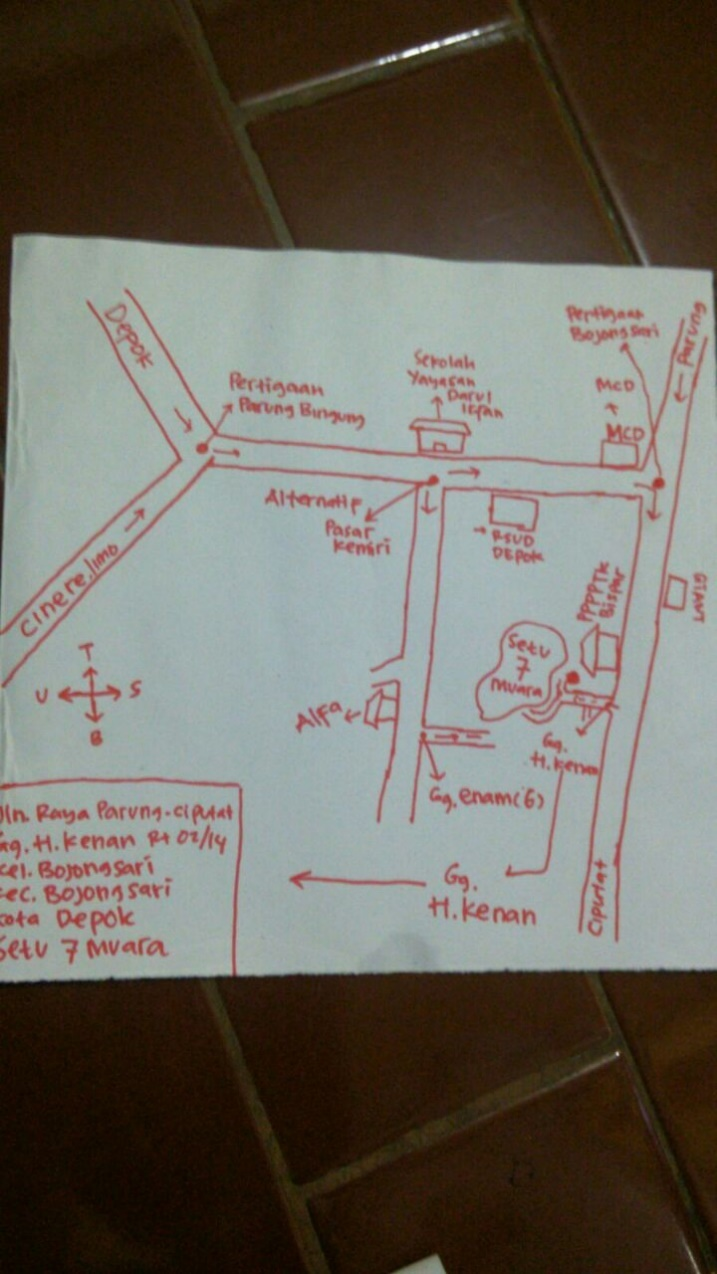 Depok
Pertigaan
Parung Bingung
Sekolah
Yayasan
Darul
Irfan
Pertigaan
Bojongsari
Parung
McD
MCD
Alternatif
Pasar
Kemiri
RSUD
DEPOK
Cinere, limo
PPPPTK
Bispar
GIANT
Setu
7
Muara
T
U S
B
Alfa
Gg.
H.Kenan
Gg. enam (6)
Gg.
H.Kenan
Ciputat
Jln. Raya Parung-Ciputat
Gg. H. Kenan Rt 02/14
Kel. Bojongsari
Kec. Bojongsari
Kota Depok
Setu 7 Muara